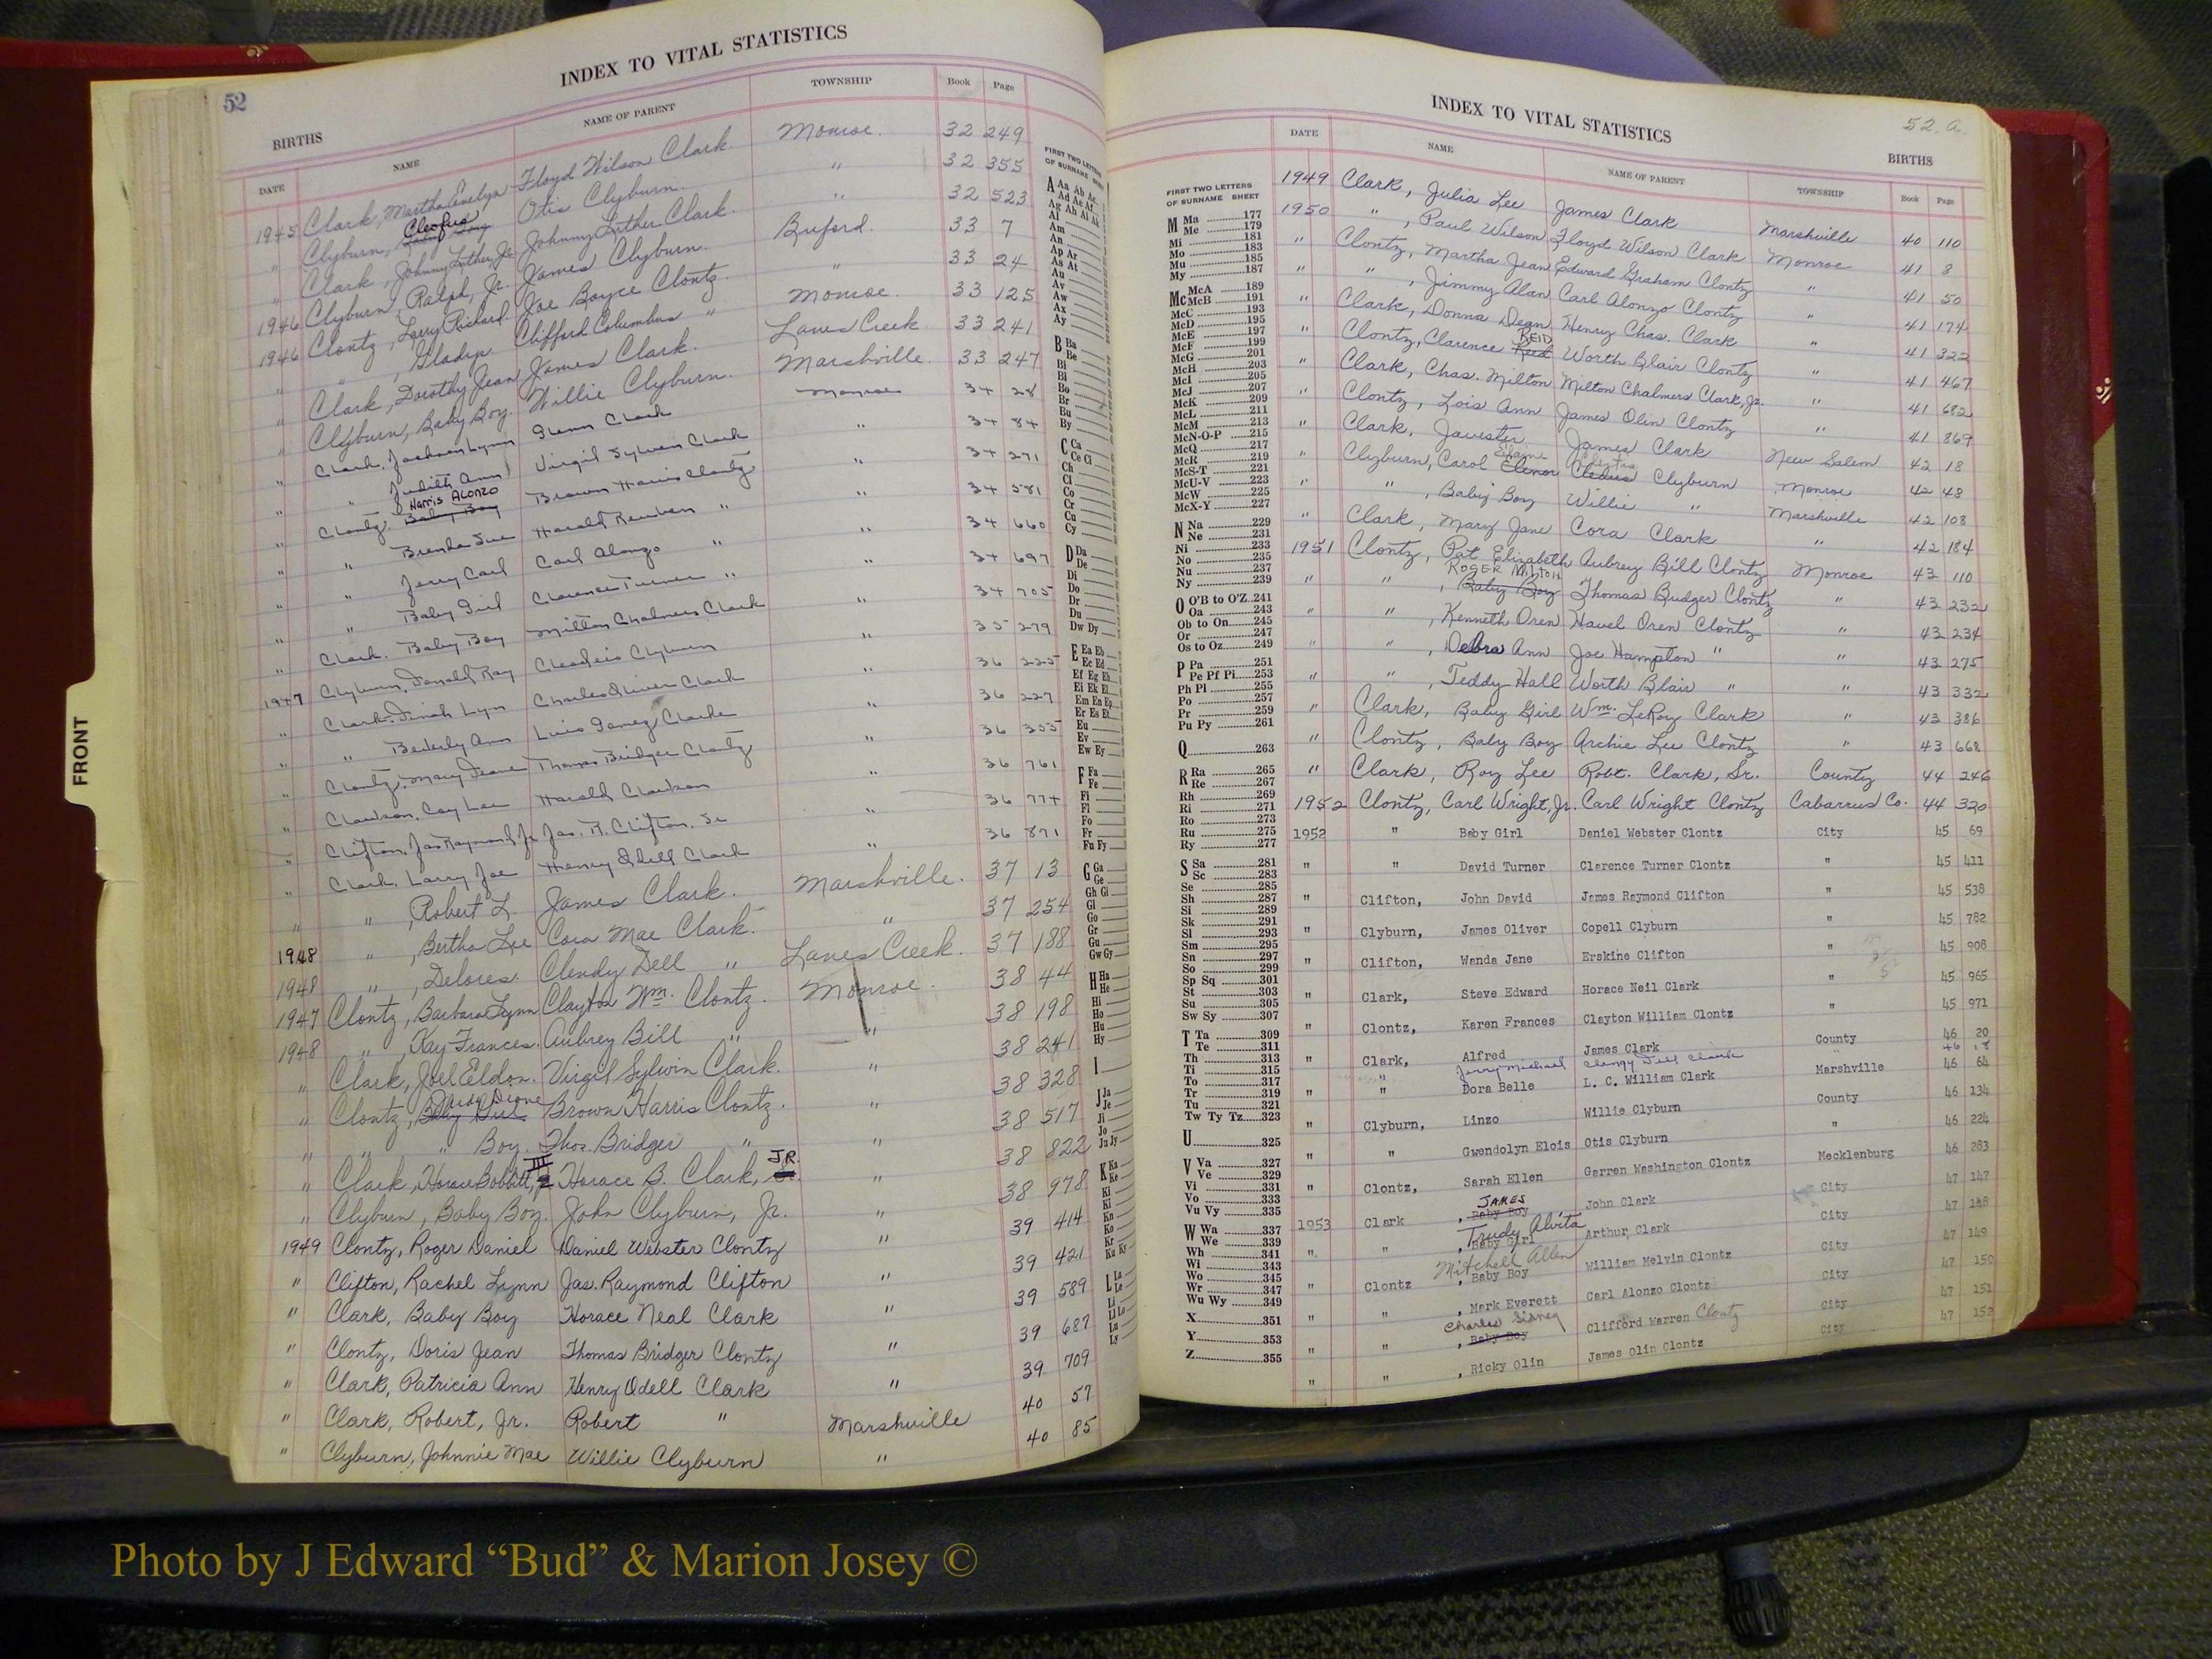 52
INDEX TO VITAL STATISTICS
BIRTHS
DATE NAME NAME OF PARENT TOWNSHIP Book Page
1945 Clark, Martha Evelyn Floyd Wilson Clark. Monroe. 32 249
" Clyburn, Cleofus Otis Clyburn. " 32 355
" Clark, Johnny Luther, Jr. Johnny Luther Clark. " 32 523
1946 Clyburn, Ralph, Jr. James Clyburn. Buford. 33 7
1946 Clontz, Larry Richard. Joe Boyce Clontz. " 33 24
" " , Gladys. Clifford Columbus " Monroe. 33 125
" Clark, Dorothy Jean James Clark. Lanes Creek 33 241
" Clyburn, Baby Boy. Willie Clyburn. Marshville. 33 247
" Clark, Lynn Glenn Clark Monroe 34 28
" " Judith Ann Virgil Sylvin Clark " 34 84
" Clontz, Harris Alonzo Baby Boy Brown Harris Clontz " 34 271
" " Brenda Sue Harold Reuben " " 34 581
" " Jerry Carl Carl Alonzo " " 34 660
" " Baby Girl Clarence Turner " " 34 697
" Clark, Baby Boy Milton Chalmers Clark " 34 705
1947 Clyburn, Ray Clyburn " 35 279
" Clark, Lyn Charles Oliver Clark " 36 225
" " Beverly Ann " 36 227
" Clontz, Mary Thomas Bridger Clontz " 36 355
" Clawson, Harold Clawson " 36 761
" Clifton, Jas Raymond Jr Jas. R. Clifton, Sr " 36 774
" Clark, Larry Joe Henry Odell Clark " 36 871
" " , Robert L. James Clark. Marshville. 37 13
1948 " , Bertha Lee Cora Mae Clark. " 37 254
1948 " , Delores. Clendy Dell " Lanes Creek. 37 188
1947 Clontz, Barbara Lynn Clayton Wm. Clontz. Monroe. 38 44
1948 " , Kay Frances. Aubrey Bill " " 38 198
" Clark, Joel Eldon. Virgil Sylvin Clark. " 38 241
" Clontz, Baby Girl Brown Harris Clontz. " 38 328
" " " Boy. Thos. Bridger " " 38 517
" Clark, Horace Bobbitt, III Horace B. Clark, JR. " 38 822
" Clyburn, Baby Boy. John Clyburn, Jr. " 38 978
1949 Clontz, Roger Daniel Daniel Webster Clontz " 39 414
" Clifton, Rachel Lynn Jas. Raymond Clifton " 39 421
" Clark, Baby Boy Horace Neal Clark " 39 589
" Clontz, Doris Jean Thomas Bridger Clontz " 39 687
" Clark, Patricia Ann Henry Odell Clark " 39 709
" Clark, Robert, Jr. Robert " Marshville 40 57
" Clyburn, Johnnie Mae Willie Clyburn " 40 85
FRONT
FIRST TWO LETTERS
OF SURNAME SHEET
A Aa Ab Ac
Ad Ae Af
Ag Ah Ai Ak
Al
Am
An
Ap Ar
As At
Au
Av
Aw
Ax
Ay
B Ba
Be
Bi
Bl
Bo
Br
Bu
By
C Ca
Ce Ci
Ch
Cl
Co
Cr
Cu
Cy
D Da
De
Di
Do
Dr
Du
Dw Dy
E Ea Eb
Ec Ed
Ef Eg Eh
Ei Ek El
Em En Ep
Er Es Et
Eu
Ev
Ew Ey
F Fa
Fe
Fi
Fl
Fo
Fr
Fu Fy
G Ga
Ge
Gh Gi
Gl
Go
Gr
Gu
Gw Gy
H Ha
He
Hi
Ho
Hu
Hy
I
J Ja
Je
Ji
Jo
Ju Jy
K Ka
Ke
Ki
Kl
Kn
Ko
Kr
Ku Ky
L La
Le
Li
Ll Lo
Lu
Ly
INDEX TO VITAL STATISTICS
52. a.
BIRTHS
DATE NAME NAME OF PARENT TOWNSHIP Book Page
FIRST TWO LETTERS
OF SURNAME SHEET
M Ma 177
Me 179
Mi 181
Mo 183
Mu 185
My 187
Mc McA 189
McB 191
McC 193
McD 195
McE 197
McF 199
McG 201
McH 203
McI 205
McJ 207
McK 209
McL 211
McM 213
McN-O-P 215
McQ 217
McR 219
McS-T 221
McU-V 223
McW 225
McX-Y 227
N Na 229
Ne 231
Ni 233
No 235
Nu 237
Ny 239
O O'B to O'Z 241
Oa 243
Ob to On 245
Or 247
Os to Oz 249
P Pa 251
Pe Pf Pi 253
Ph Pl 255
Po 257
Pr 259
Pu Py 261
Q 263
R Ra 265
Re 267
Rh 269
Ri 271
Ro 273
Ru 275
Ry 277
S Sa 281
Sc 283
Se 285
Sh 287
Si 289
Sk 291
Sl 293
Sm 295
Sn 297
So 299
Sp Sq 301
St 303
Su 305
Sw Sy 307
T Ta 309
Te 311
Th 313
Ti 315
To 317
Tr 319
Tu 321
Tw Ty Tz 323
U 325
V Va 327
Ve 329
Vi 331
Vo 333
Vu Vy 335
W Wa 337
We 339
Wh 341
Wi 343
Wo 345
Wr 347
Wu Wy 349
X 351
Y 353
Z 355
1949 Clark, Julia Lee James Clark Marshville 40 110
1950 " , Paul Wilson Floyd Wilson Clark Monroe 41 8
" Clontz, Martha Jean Edward Graham Clontz " 41 50
" " , Jimmy Alan Carl Alonzo Clontz " 41 174
" Clark, Donna Dean Henry Chas. Clark " 41 322
" Clontz, Clarence Reid REID Worth Blair Clontz " 41 467
" Clark, Chas. Milton Milton Chalmers Clark, Jr. " 41 682
" Clontz, Lois Ann James Olin Clontz " 41 869
" Clark, Javester James Clark New Salem 42 18
" Clyburn, Carol Elaine Elenor Cledus Clyburn Monroe 42 48
" " , Baby Boy Willie " Marshville 42 108
" Clark, Mary Jane Cora Clark " 42 184
1951 Clontz, Pat Elizabeth Aubrey Bill Clontz Monroe 43 110
" " , ROGER MILTON Baby Boy Thomas Budger Clontz " 43 232
" " , Kenneth Oren Havel Oren Clontz " 43 234
" " , Debra Ann Joe Hampton " " 43 275
" " , Teddy Hall Worth Blair " " 43 332
" Clark, Baby Girl Wm. LeRoy Clark " 43 386
" Clontz, Baby Boy Archie Lee Clontz " 43 668
" Clark, Roy Lee Robt. Clark, Sr. County 44 246
1952 Clontz, Carl Wright, Jr. Carl Wright Clontz Cabarrus Co. 44 320
1952 " Baby Girl Daniel Webster Clontz City 45 69
" " David Turner Clarence Turner Clontz " 45 411
" Clifton, John David James Raymond Clifton " 45 538
" Clyburn, James Oliver Copell Clyburn " 45 782
" Clifton, Wanda Jane Erskine Clifton " 45 908
" Clark, Steve Edward Horace Neil Clark " 45 965
" Clontz, Karen Frances Clayton William Clontz " 45 971
" Clark, Alfred James Clark County 46 20
" Jerry Michael Clendy Dell Clark " 46 18
" " Dora Belle L. C. William Clark Marshville 46 64
" Clyburn, Linzo Willie Clyburn County 46 134
" " Gwendolyn Elois Otis Clyburn " 46 224
" Clontz, Sarah Ellen Garren Washington Clontz Mecklenburg 46 283
1953 Clark , JAMES Baby Boy John Clark City 47 147
" " , Trudy Alvita Baby Girl Arthur Clark City 47 148
" Clontz , Mitchell Allen Baby Boy William Melvin Clontz City 47 149
" " , Mark Everett Carl Alonzo Clontz City 47 150
" " , Charles Sidney Baby Boy Clifford Warren Clontz City 47 151
" " , Ricky Olin James Olin Clontz City 47 152
Photo by J Edward “Bud” & Marion Josey ©